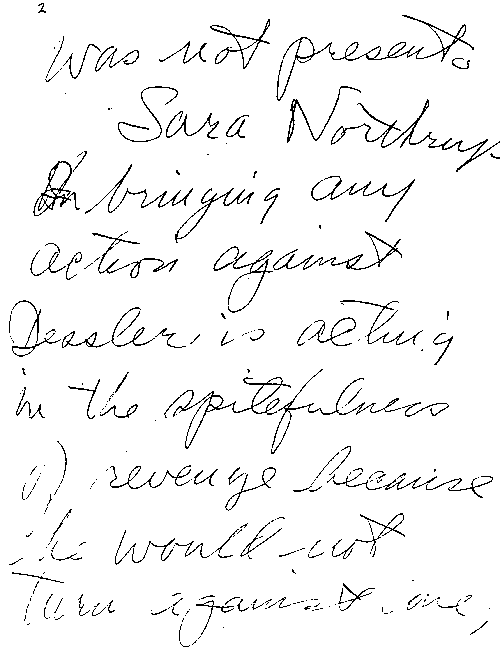 2
was not present.
Sara Northrup
In bringing any
action against
Dessler, is acting
in the spitefulness
of revenge because
he would not
turn against me,